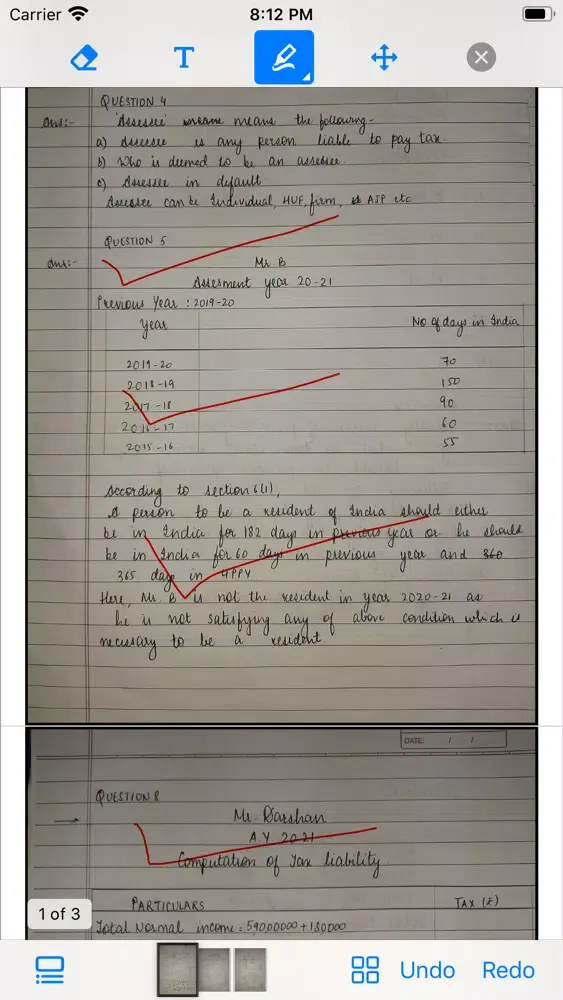 Carrier 8:12 PM
T
QUESTION 4
Ans:- 'Assessee' means the following-
a) Assessee is any person liable to pay tax.
b) Who is deemed to be an assessee.
c) Assessee in default.
Assessee can be Individual, HUF, firm, AJP etc
QUESTION 5
Ans:- Mr B
Assesment year 20-21
Previous Year : 2019-20
Year No of days in India
2019-20 70
2018-19 150
2017-18 90
2016-17 60
2015-16 55
According to section 6(1),
A person to be a resident of India should either
be in India for 182 days in previous year or he should
be in India for 60 days in previous year and 360
365 days in 4PPY
Here, Mr. B is not the resident in year 2020-21 as
he is not satisfying any of above condition which is
necessary to be a resident.
DATE: / /
QUESTION 8
Mr. Darshan
A.Y 2021
Computation of Tax liability
PARTICULARS TAX (₹)
Total Normal income = 5900000 + 180000
1 of 3
Undo Redo